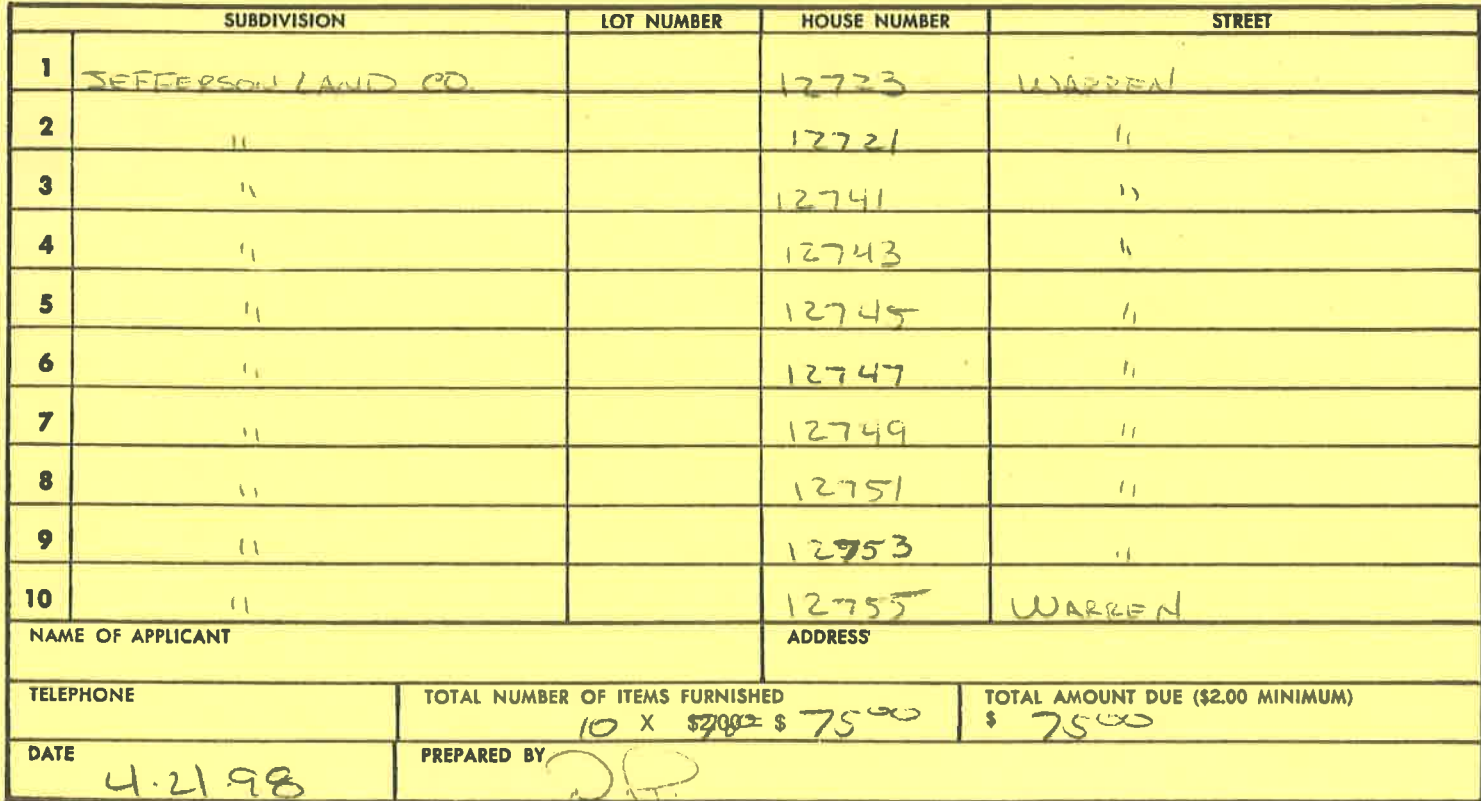 SUBDIVISION LOT NUMBER HOUSE NUMBER STREET
1 JEFFERSON LAND CO. 12723 WARREN
2 " 12721 "
3 " 12741 "
4 " 12743 "
5 " 12745 "
6 " 12747 "
7 " 12749 "
8 " 12751 "
9 " 12753 "
10 " 12755 WARREN
NAME OF APPLICANT ADDRESS
TELEPHONE TOTAL NUMBER OF ITEMS FURNISHED TOTAL AMOUNT DUE ($2.00 MINIMUM)
10 X = $ 75 00 $ 75 00
DATE PREPARED BY
4.21.98